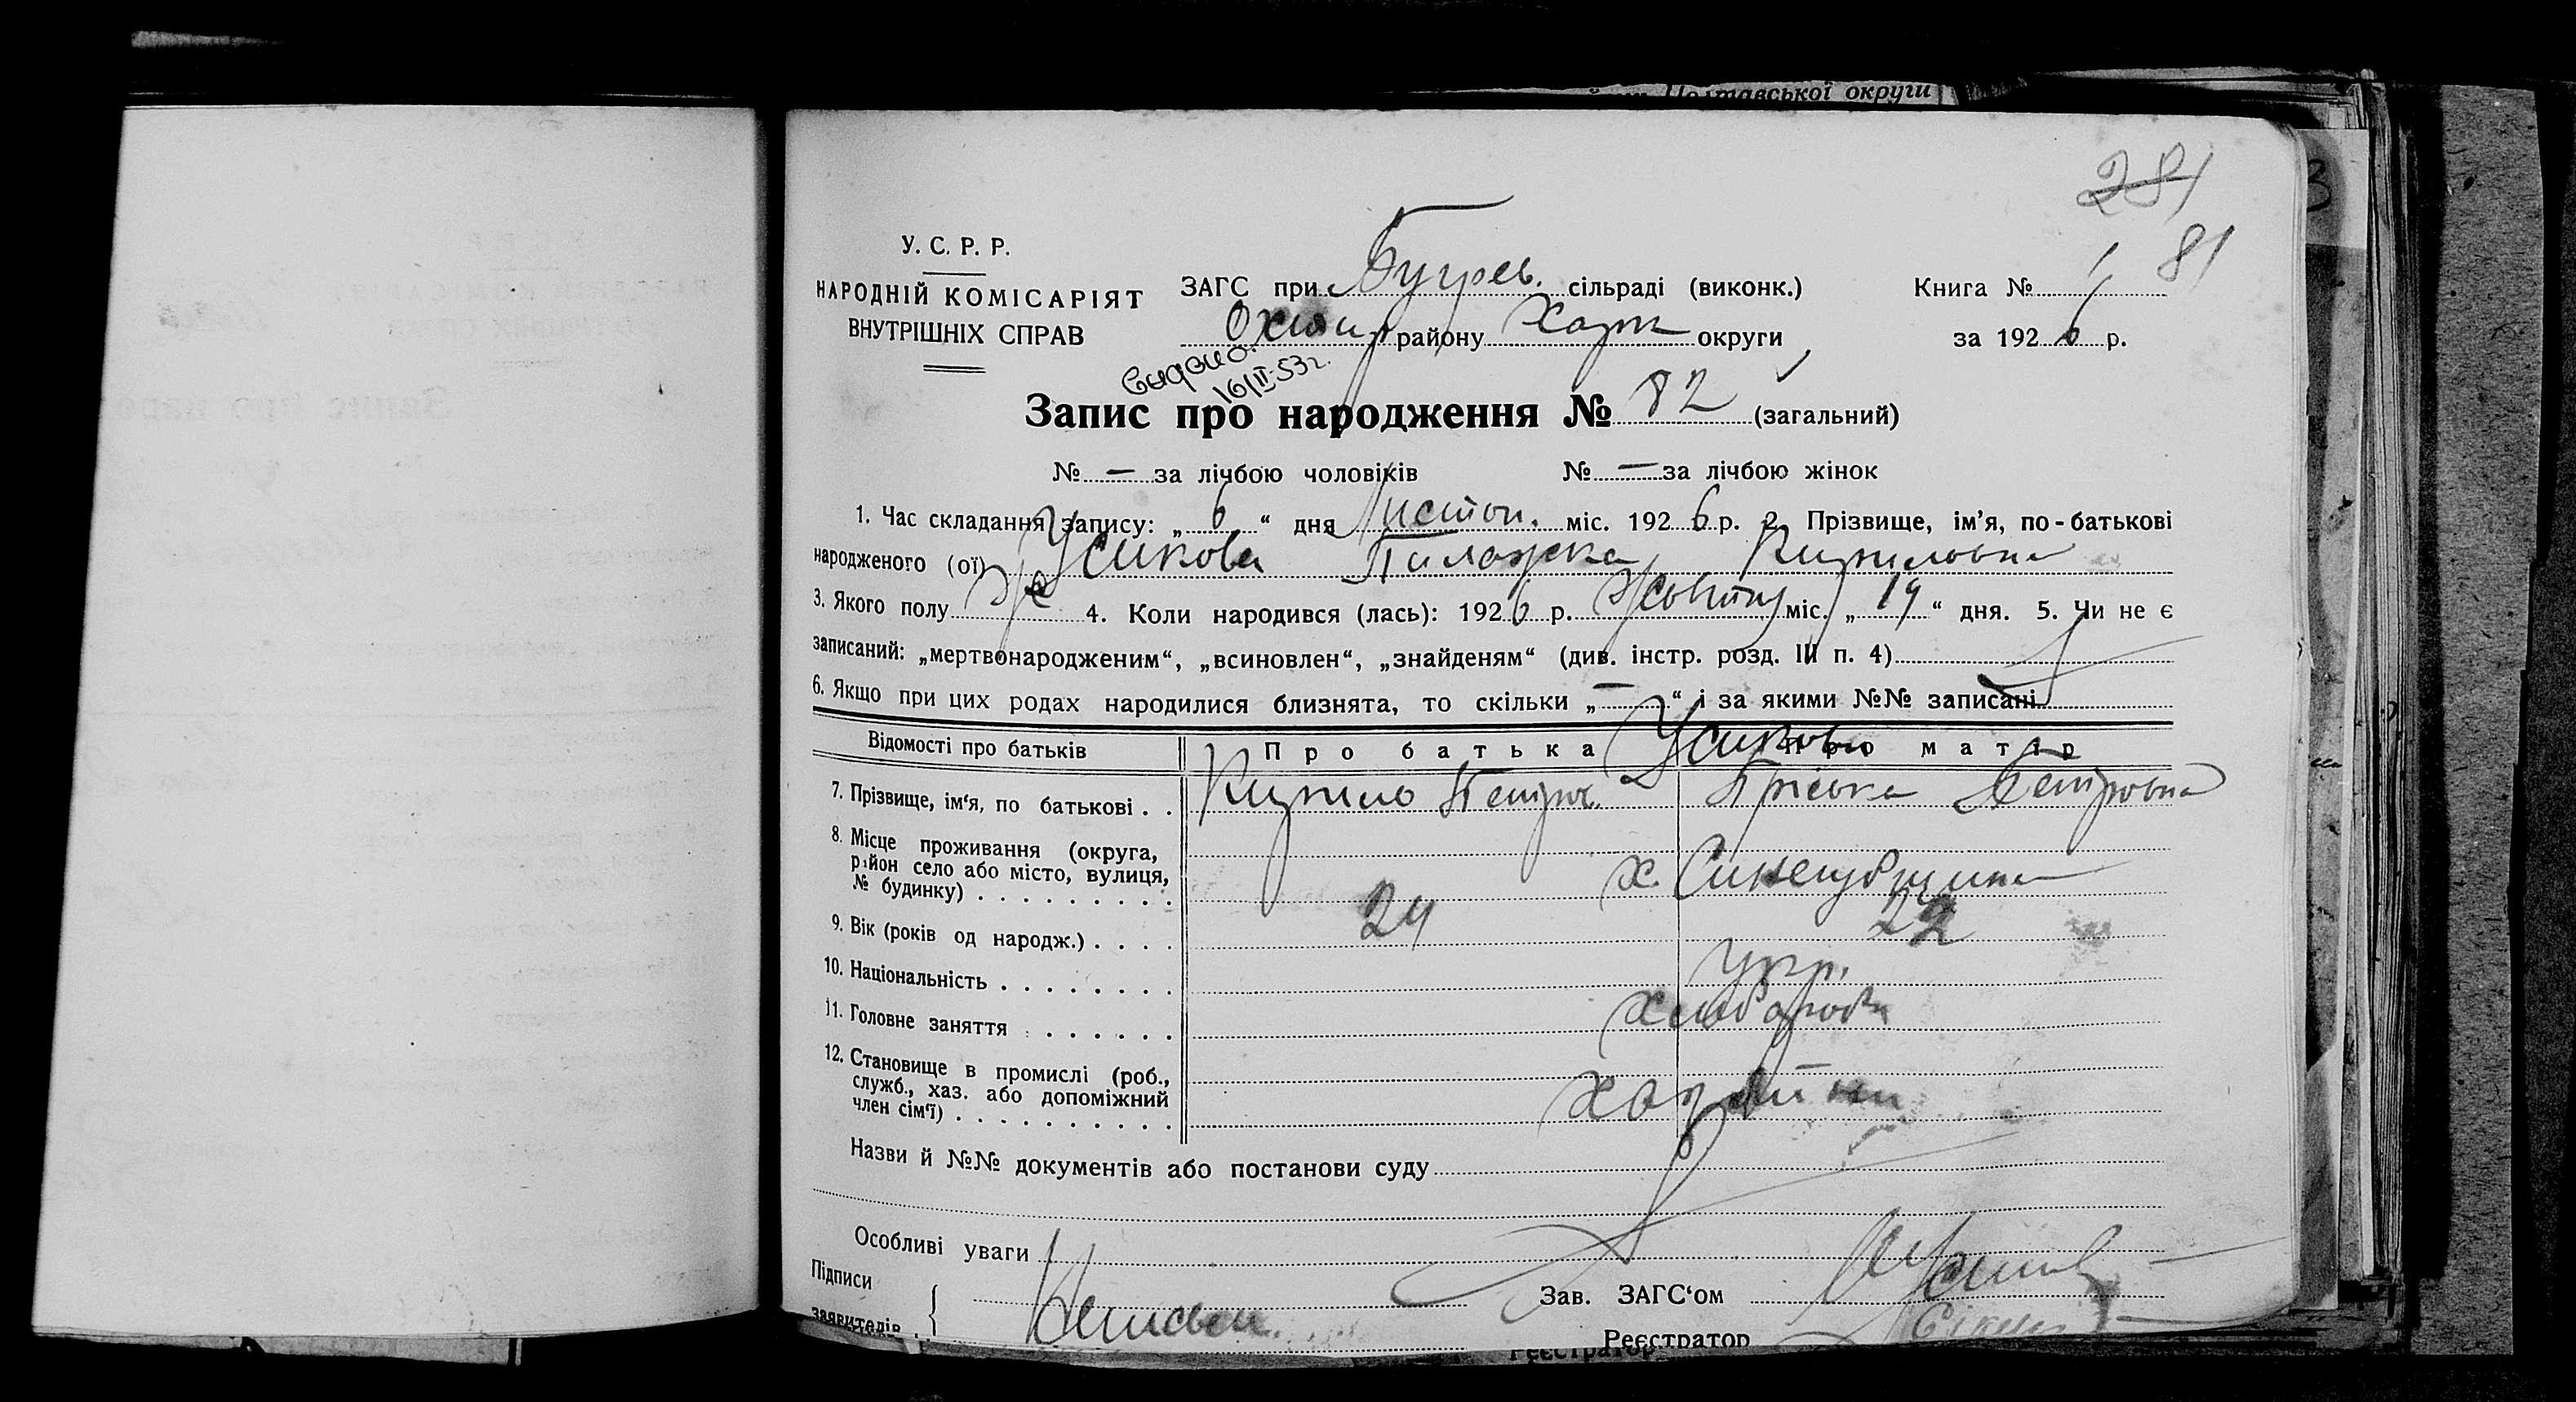 Полтавської округи
281
У. С. Р. Р.
НАРОДНІЙ КОМІСАРІЯТ
ВНУТРІШНІХ СПРАВ
ЗАГС при Бугрев. сільраді (виконк.)
району Харк округи
Книга № 1 81
за 1926 р.
Видано.
16/II-53г.
Запис про народження № 82 (загальний)
№ — за лічбою чоловіків № — за лічбою жінок
1. Час складання запису: „ 6 “ дня Листоп. міс. 1926 р. 2. Прізвище, ім’я, по-батькові
народженого (ої) Усикова Пилажка Кириловна
3. Якого полу ж 4. Коли народився (лась): 1926 р. Жовтну міс. „ 19 “ дня. 5. Чи не є
записаний: „мертвонародженим“, „всиновлен“, „знайденям“ (див. інстр. розд. III п. 4)
6. Якщо при цих родах народилися близнята, то скільки „ — “ і за якими №№ записані
Відомості про батьків Про батька Усикови Про матір
7. Прізвище, ім‘я, по батькові . . Кирило Петров. Пріська Петровна
8. Місце проживання (округа,
район село або місто, вулиця,
№ будинку) . . . . . . . . . х.
9. Вік (років од народж.) . . . . 24 22
10. Національність . . . . . . . . Укр.
11. Головне заняття . . . . . . Хлібороби
12. Становище в промислі (роб.,
служб., хаз. або допоміжний
член сім‘ї) . . . . . . . . . . Хазяйни
Назви й №№ документів або постанови суду
Особливі уваги
Підписи
заявителів
Зав. ЗАГС‘ом
Реєстратор
Реєстратор